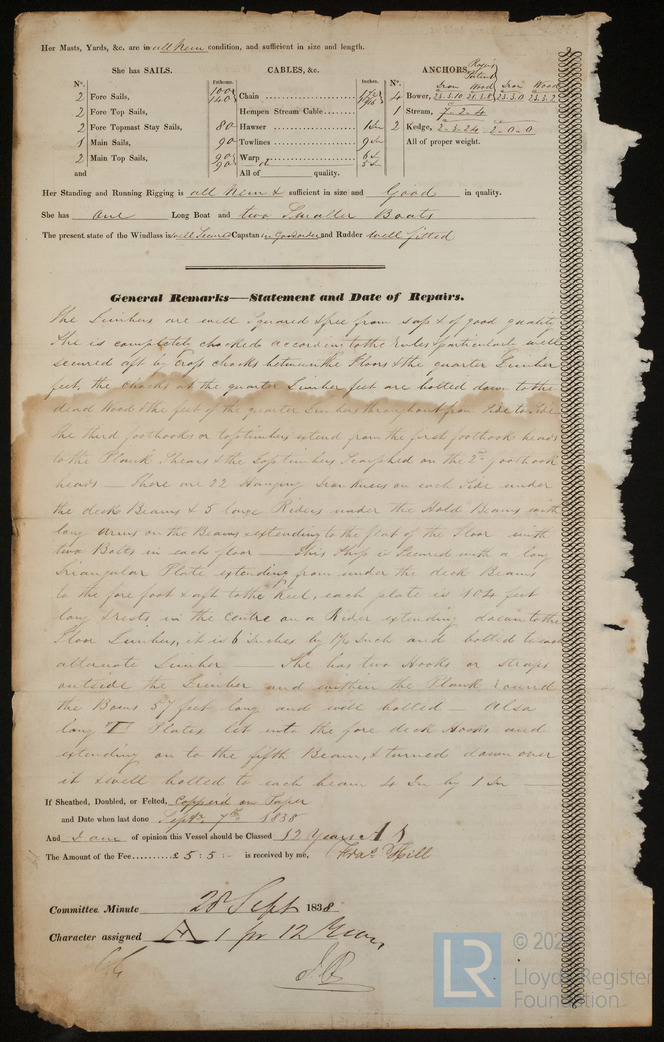 Her Masts, Yards, &c. are in all New condition, and sufficient in size and length.
She has SAILS. CABLES, &c. ANCHORS,
Nº. Fathoms. Inches. Nº. Iron Wood Iron Wood
2 Fore Sails, 100 140 Chain 4 Bower,
2 Fore Top Sails, Hempen Stream Cable 1 Stream, 7-2-4
2 Fore Topmast Stay Sails, 80 Hawser 2 Kedge, 2-3-24 2-0-0
1 Main Sails, 90 Towlines 9 In All of proper weight.
2 Main Top Sails, 90 Warp 6 In
and 90 All of quality. 5 In
Her Standing and Running Rigging is all New & sufficient in size and Good in quality.
She has one Long Boat and two Smaller Boats
The present state of the Windlass is well Secured Capstan in Good order and Rudder well fitted
General Remarks—Statement and Date of Repairs.
The Timbers are well Squared & free from Sap & of good quality
She is completely chocked according to the rules & particularly well
secured aft by Cross chocks between the Floors & the quarter Timber
feet, the chocks at the quarter Timber feet are bolted down to the
dead Wood & the feet of the quarter Timbers throughout from Side to Side
the third foothooks or toptimbers extend from the first foothook heads
to the Plank Shears & the Toptimbers Scarphed on the 2nd foothook
heads — There are 22 Hanging Iron Knees on each Side under
the deck Beams & 5 large Riders under the Hold Beams with
long arms on the Beams extending to the flat of the Floor with
two Bolts in each floor — This Ship is Secured with a long
Triangular Plate extending from under the deck Beams
to the fore foot & aft to the Keel, each plate is 104 feet
long & rests in the centre on a Rider extending down to the
Floor Timbers, it is 6 Inches by Inch and bolted to each
alternate Timber — She has two Hooks or Straps
outside the Timber and within the Plank round
the Bows 57 feet long and well bolted — Also
long T Plates let into the fore deck Hooks and
extending on to the fifth Beam, & turned down over
it & well bolted to each beam 4 In by 1 In —
If Sheathed, Doubled, or Felted, Copper'd on Paper
and Date when last done Septr 7th 1838
And I am of opinion this Vessel should be Classed 12 Years A 1
The Amount of the Fee £ 5 : 5 : - is received by me, Fras Hill
Committee Minute 28 Sept 1838
Character assigned A 1 for 12 Years
LR © 202
Lloyd's Register
Foundation